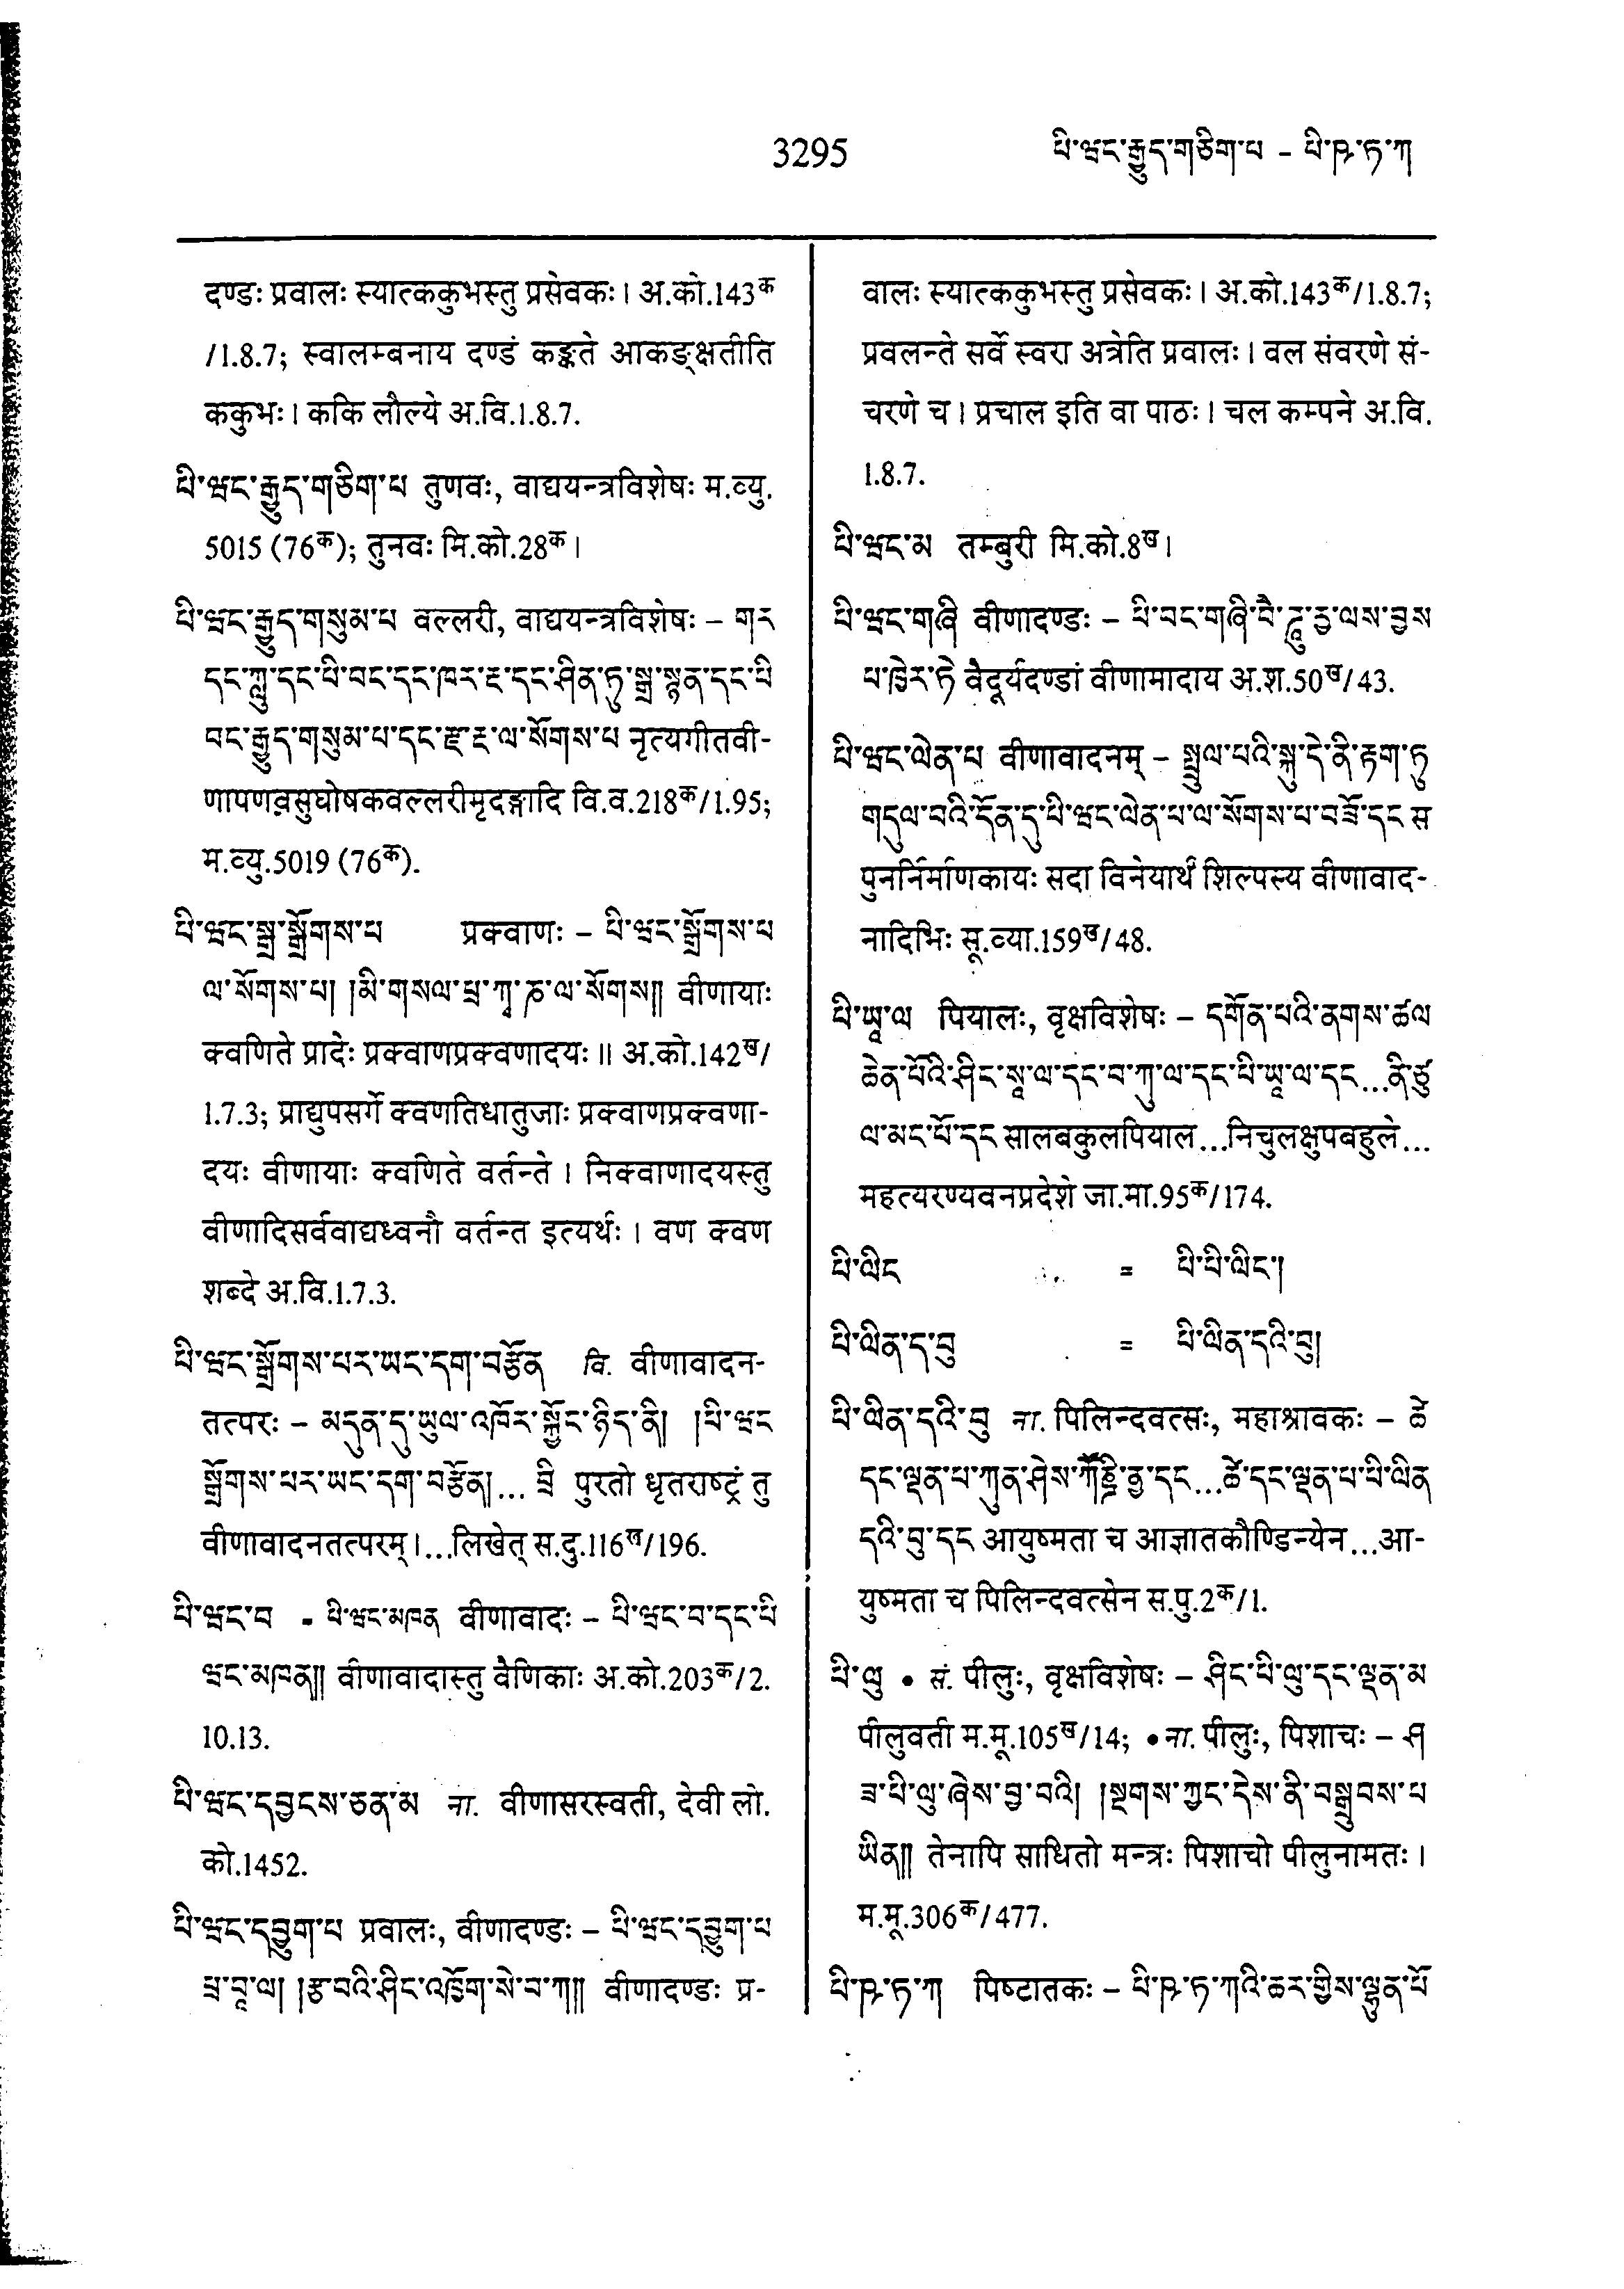 3295 པི་ཝང་རྒྱུད་གཅིག་པ – པི་ཥྚ་ཏ་ཀ
दण्डः प्रवालः स्यात्ककुभस्तु प्रसेवकः। अ.को.143क
/1.8.7; स्वालम्बनाय दण्डं कङ्कते आकङ्क्षतीति
ककुभः। ककि लौल्ये अ.वि.1.8.7.
པི་ཝང་རྒྱུད་གཅིག་པ तुणवः, वाद्ययन्त्रविशेषः म.व्यु.
5015 (76क); तुनवः मि.को.28क।
པི་ཝང་རྒྱུད་གསུམ་པ वल्लरी, वाद्ययन्त्रविशेषः – གར
དང་ཀླུ་དང་པི་བང་དང་ཁར་རྔ་དང་ཤིན་ཏུ་སྒྲ་སྙན་དང་པི
བང་རྒྱུད་གསུམ་པ་དང་རྫ་རྔ་ལ་སོགས་པ नृत्यगीतवी-
णापणवसुघोषकवल्लरीमृदङ्गादि वि.व.218क/1.95;
म.व्यु.5019 (76क).
པི་ཝང་སྒྲ་སྒྲོགས་པ प्रक्वाणः – པི་ཝང་སྒྲོགས་པ
ལ་སོགས་པ། །མི་གསལ་པྲ་ཀྭ་ཎ་ལ་སོགས།། वीणायाः
क्वणिते प्रादेः प्रक्वाणप्रक्वणादयः॥ अ.को.142ख/
1.7.3; प्राद्युपसर्गे क्वणतिधातुजाः प्रक्वाणप्रक्वणा-
दयः वीणायाः क्वणिते वर्तन्ते। निक्वाणादयस्तु
वीणादिसर्ववाद्यध्वनौ वर्तन्त इत्यर्थः। वण क्वण
शब्दे अ.वि.1.7.3.
པི་ཝང་སྒྲོགས་པར་ཡང་དག་བརྩོན वि. वीणावादन-
तत्परः – མདུན་དུ་ཡུལ་འཁོར་སྐྱོང་ཉིད་ནི། །པི་ཝང
སྒྲོགས་པར་ཡང་དག་བརྩོན།... བྲི पुरतो धृतराष्ट्रं तु
वीणावादनतत्परम्।...लिखेत् स.दु.116ख/196.
པི་ཝང་བ = པི་ཝང་མཁན वीणावादः – པི་ཝང་བ་དང་པི
ཝང་མཁན།། वीणावादास्तु वैणिकाः अ.को.203क/2.
10.13.
པི་ཝང་དབྱངས་ཅན་མ ना. वीणासरस्वती, देवी लो.
को.1452.
པི་ཝང་དབྱུག་པ प्रवालः, वीणादण्डः – པི་ཝང་དབྱུག་པ
པྲ་བཱ་ལ། །རྩ་བའི་ཤིང་འཁྲོག་སེ་བ་ཀ།། वीणादण्डः प्र-
वालः स्यात्ककुभस्तु प्रसेवकः। अ.को.143क/1.8.7;
प्रवलन्ते सर्वे स्वरा अत्रेति प्रवालः। वल संवरणे सं-
चरणे च। प्रचाल इति वा पाठः। चल कम्पने अ.वि.
1.8.7.
པི་ཝང་མ तम्बुरी मि.को.8ख।
པི་ཝང་གཞི वीणादण्डः – པི་བང་གཞི་བཻ་ཌཱུ་རྱ་ལས་བྱས
པ་ཁྱེར་ཏེ वैदूर्यदण्डां वीणामादाय अ.श.50ख/43.
པི་ཝང་ལེན་པ वीणावादनम् – སྤྲུལ་པའི་སྐུ་དེ་ནི་རྟག་ཏུ
གདུལ་བའི་དོན་དུ་པི་ཝང་ལེན་པ་ལ་སོགས་པ་བཟོ་དང स
पुनर्निर्माणकायः सदा विनेयार्थं शिल्पस्य वीणावाद-
नादिभिः सू.व्या.159ख/48.
པི་ཡཱ་ལ पियालः, वृक्षविशेषः – དགོན་པའི་ནགས་ཚལ
ཆེན་པོའི་ཤིང་སཱ་ལ་དང་བ་ཀུ་ལ་དང་པི་ཡཱ་ལ་དང...ནི་ཙུ
ལ་མང་པོ་དང सालबकुलपियाल...निचुलक्षुपबहुले...
महत्यरण्यवनप्रदेशे जा.मा.95क/174.
པི་ལིང = པི་པི་ལིང་།
པི་ལིན་ད་བུ = པི་ལིན་དའི་བུ།
པི་ལིན་དའི་བུ ना. पिलिन्दवत्सः, महाश्रावकः – ཚེ
དང་ལྡན་པ་ཀུན་ཤེས་ཀཽཎྜི་ནྱ་དང...ཚེ་དང་ལྡན་པ་པི་ལིན
དའི་བུ་དང आयुष्मता च आज्ञातकौण्डिन्येन...आ-
युष्मता च पिलिन्दवत्सेन स.पु.2क/1.
པི་ལུ • सं. पीलुः, वृक्षविशेषः – ཤིང་པི་ལུ་དང་ལྡན་མ
पीलुवती म.मू.105ख/14; • ना. पीलुः, पिशाचः – ཤ
ཟ་པི་ལུ་ཞེས་བྱ་བའི། །སྔགས་ཀྱང་དེས་ནི་བསྒྲུབས་པ
ཡིན།། तेनापि साधितो मन्त्रः पिशाचो पीलुनामतः।
म.मू.306क/477.
པི་ཥྚ་ཏ་ཀ पिष्टातकः – པི་ཥྚ་ཏ་ཀའི་ཆར་གྱིས་ལྷུན་པོ